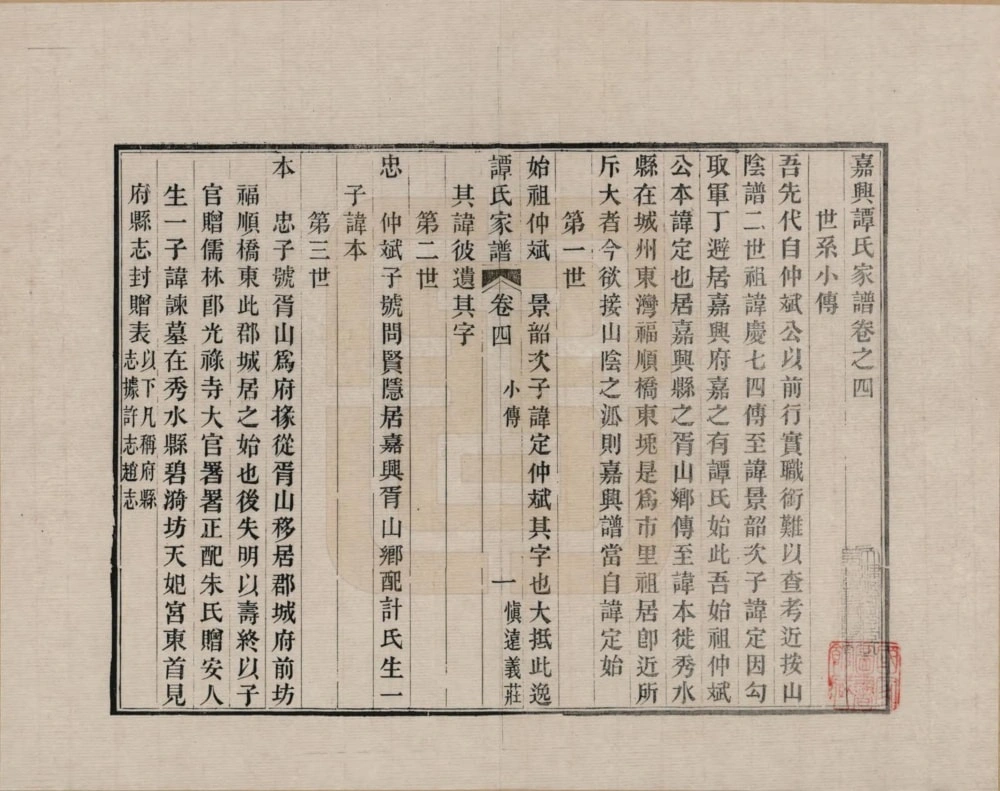 嘉興譚氏家譜卷之四
世系小傳
吾先代自仲斌公以前行實職銜難以查考近按山
陰譜二世祖諱慶七四傳至諱景韶次子諱定因勾
取軍丁避居嘉興府嘉之有譚氏始此吾始祖仲斌
公本諱定也居嘉興縣之胥山鄉傳至諱本徙秀水
縣在城州東灣福順橋東堍是爲市里祖居卽近所
斥大者今欲接山陰之派則嘉興譜當自諱定始
第一世
始祖仲斌 景韶次子諱定仲斌其字也大抵此逸
譚氏家譜 卷四 小傳 一 愼遠義莊
其諱彼遺其字
第二世
忠 仲斌子號問賢隱居嘉興胥山鄉配計氏生一
子諱本
第三世
本 忠子號胥山爲府掾從胥山移居郡城府前坊
福順橋東此郡城居之始也後失明以壽終以子
官贈儒林郎光祿寺大官署署正配朱氏贈安人
生一子諱諫墓在秀水縣碧漪坊天妃宮東首見
府縣志封贈表以下凡稱府縣志據許志趙志